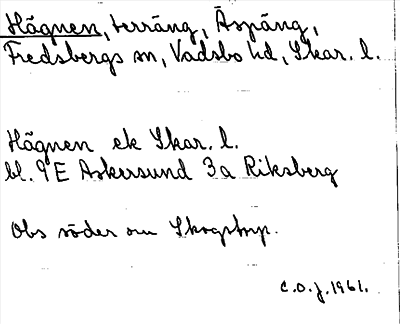 Hägnen, terräng, Äspäng,
Fredsbergs sn, Vadsbo hd, Skar. l.
Hägnen ek Skar. l.
bl. 9E Askersund 3a Riksberg
Obs söder om Skogstorp.
C.O.J. 1961.